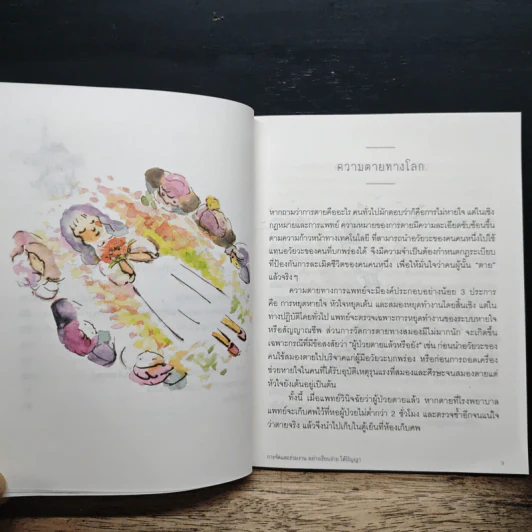 ความตายทางโลก
หากถามว่าการตายคืออะไร คนทั่วไปมักตอบว่าก็คือการไม่หายใจ แต่ในเชิง
กฎหมายและการแพทย์ ความหมายของการตายมีความละเอียดซับซ้อนขึ้น
ตามความก้าวหน้าทางเทคโนโลยี ที่สามารถนำอวัยวะของคนคนหนึ่งไปใช้
แทนอวัยวะของคนที่บกพร่องได้ จึงมีความจำเป็นต้องกำหนดกฎระเบียบ
ที่ป้องกันการละเมิดชีวิตของคนคนหนึ่ง เพื่อให้มั่นใจว่าคนผู้นั้น “ตาย”
แล้วจริงๆ
ความตายทางการแพทย์จะมีองค์ประกอบอย่างน้อย 3 ประการ
คือ การหยุดหายใจ หัวใจหยุดเต้น และสมองหยุดทำงานโดยสิ้นเชิง แต่ใน
ทางปฏิบัติโดยทั่วไป แพทย์จะตรวจเฉพาะการหยุดทำงานของระบบหายใจ
หรือสัญญาณชีพ ส่วนการวัดการตายทางสมองมีไม่มากนัก จะเกิดขึ้น
เฉพาะกรณีที่มีข้อสงสัยว่า “ผู้ป่วยตายแล้วหรือยัง” เช่น ก่อนนำอวัยวะของ
คนไข้สมองตายไปบริจาคแก่ผู้มีอวัยวะบกพร่อง หรือก่อนการถอดเครื่อง
ช่วยหายใจในคนที่ได้รับอุบัติเหตุรุนแรงที่สมองและศีรษะจนสมองตายแต่
หัวใจยังเต้นอยู่เป็นต้น
ทั้งนี้ เมื่อแพทย์วินิจฉัยว่าผู้ป่วยตายแล้ว หากตายที่โรงพยาบาล
แพทย์จะเก็บศพไว้ที่หอผู้ป่วยไม่ต่ำกว่า 2 ชั่วโมง และตรวจซ้ำอีกจนแน่ใจ
ว่าตายจริง แล้วจึงนำไปเก็บในตู้เย็นที่ห้องเก็บศพ